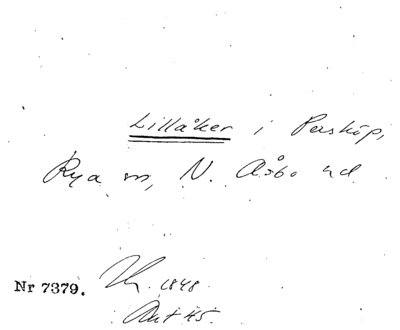 Lillåker i Perstorp,
Rya sn, N. Åsbo hd
Nr 7379. 1848
Ant 45.